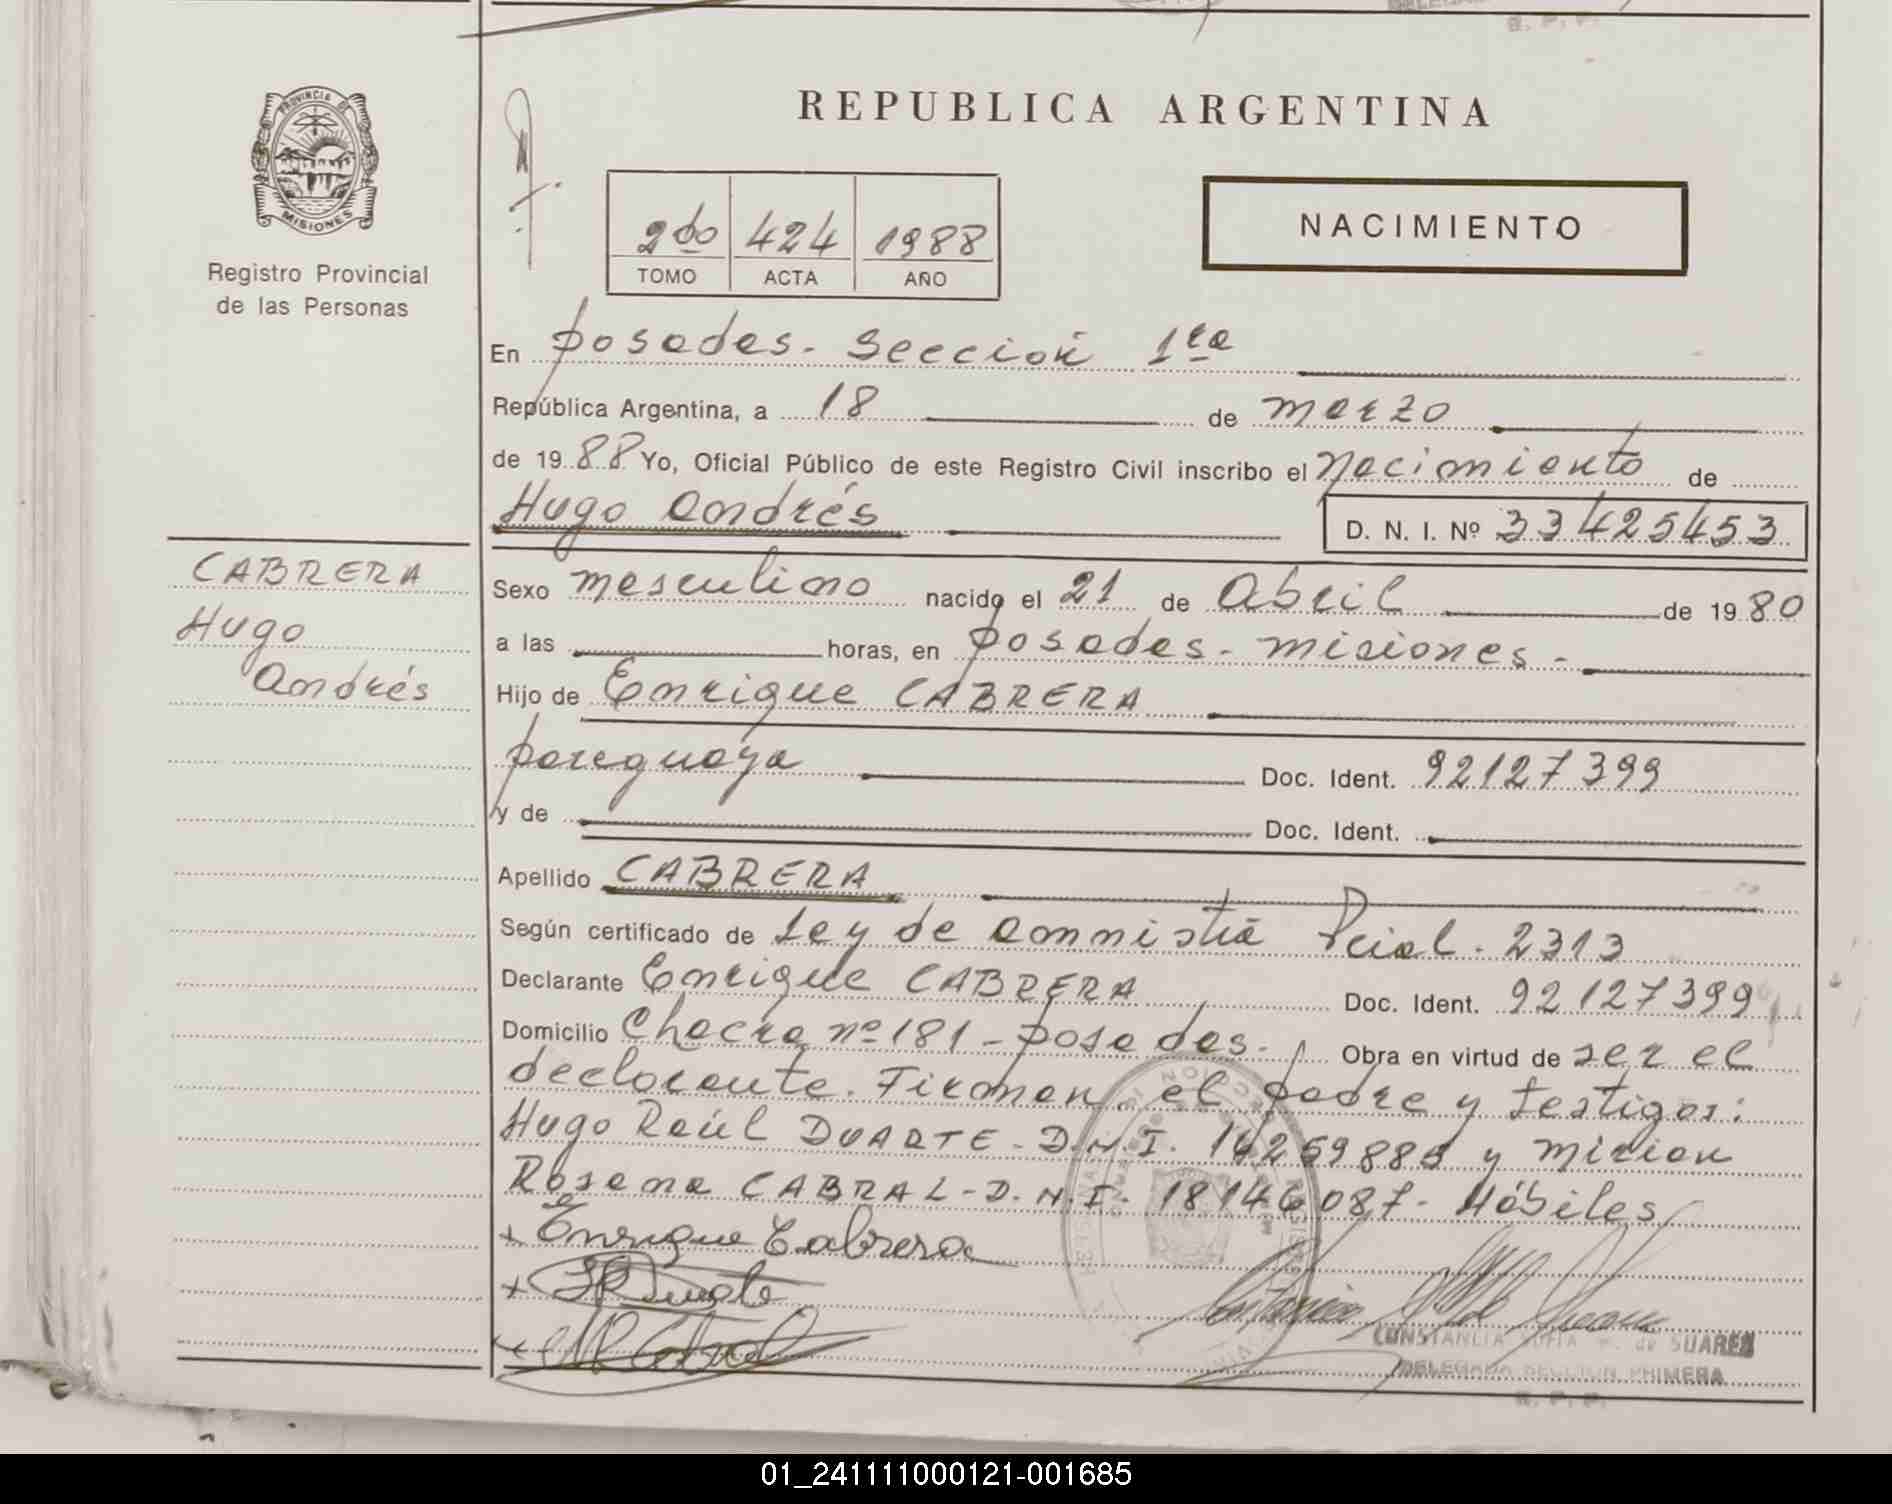 REPUBLICA ARGENTINA
PROVINCIA DE
MISIONES
Registro Provincial
de las Personas
2do 424 1988
TOMO ACTA AÑO
NACIMIENTO
En Posadas - Sección 1ra
República Argentina, a 18 de marzo
de 1988 Yo, Oficial Público de este Registro Civil inscribo el Nacimiento de
Hugo Andrés
D. N. I. Nº 33425453
CABRERA
Hugo
Andrés
Sexo masculino nacido el 21 de Abril de 1980
a las horas, en Posadas - Misiones -
Hijo de Enrique CABRERA
paraguaya Doc. Ident. 92127399
y de Doc. Ident.
Apellido CABRERA
Según certificado de Ley de amnistia Pcial. 2313
Declarante Enrique CABRERA Doc. Ident. 92127399
Domicilio Chacra nº 181 - Posadas - Obra en virtud de ser el
declarante. Firman el padre y testigos:
Hugo Raúl DUARTE - D.N.I. 14259885 y Mirian
Rosana CABRAL - D.N.I. 18146087 - Hábiles
+ Enrique Cabrera
+
+
CONSTANCIA SOFIA de SUAREZ
DELEGADA SECCION PRIMERA
R. P. P.
01_241111000121-001685